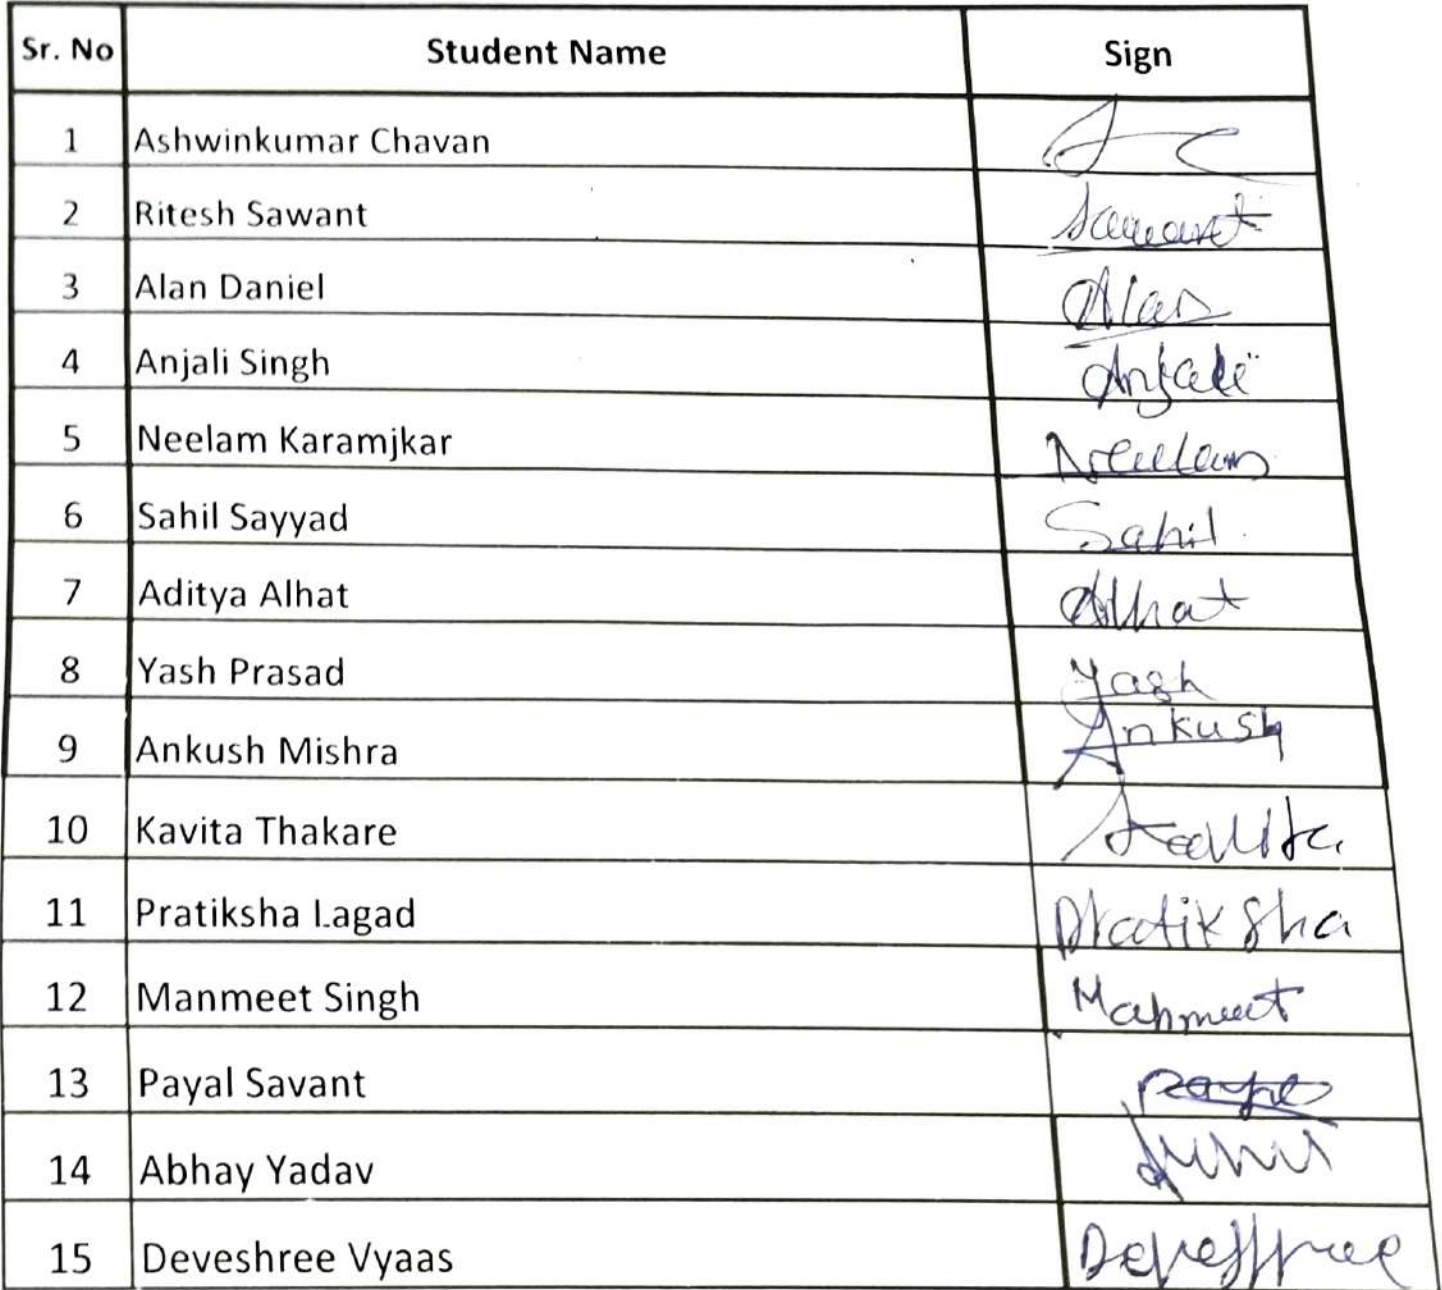 Sr. No Student Name Sign
1 Ashwinkumar Chavan
2 Ritesh Sawant Sawant
3 Alan Daniel Alan
4 Anjali Singh Anjali
5 Neelam Karamjkar Neelam
6 Sahil Sayyad Sahil
7 Aditya Alhat Alhat
8 Yash Prasad Yash
9 Ankush Mishra Ankush
10 Kavita Thakare Kavita
11 Pratiksha Lagad Pratiksha
12 Manmeet Singh Manmeet
13 Payal Savant
14 Abhay Yadav
15 Deveshree Vyaas Deveshree